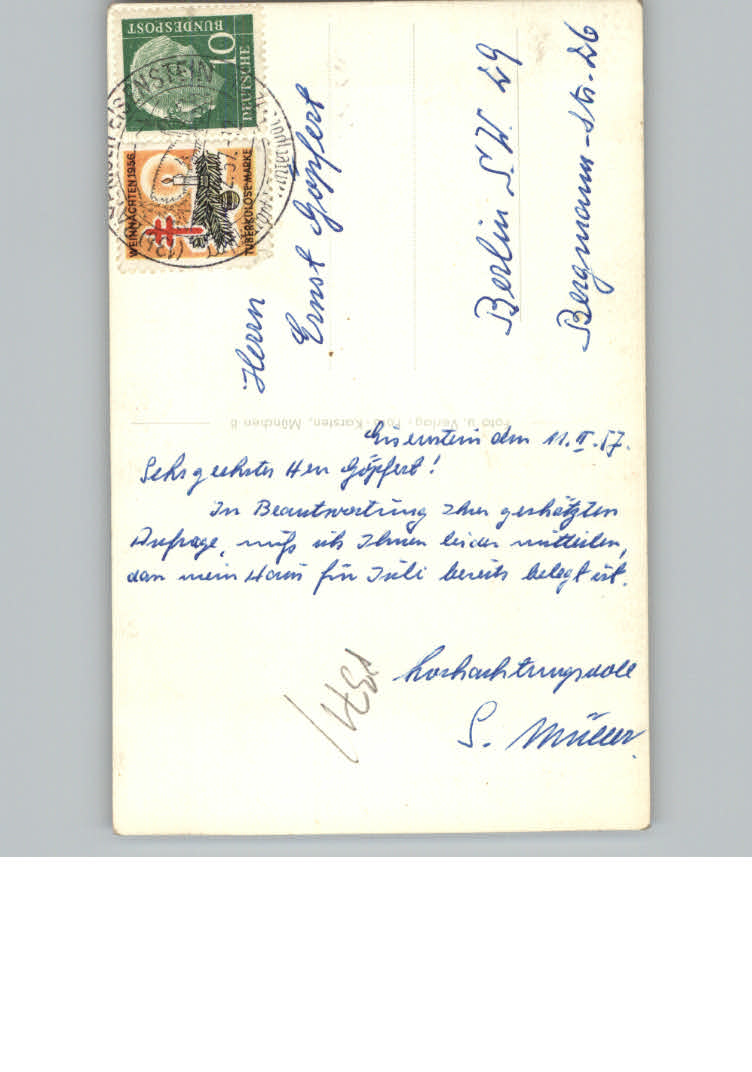 DEUTSCHE
BUNDESPOST
10
WEIHNACHTEN 1956
TUBERKULOSE-MARKE
Herrn
Ernst Göpfert
Berlin S.W. 29
Bergmann-Str. 26
Foto u. Verlag - Foto-Karsten, München 8
Eisenstein den 11.II.57.
Sehr geehrter Herr Göpfert!
In Beantwortung Ihrer geschätzten
Anfrage, muß ich Ihnen leider mitteilen,
dass mein Haus für Juli bereits belegt ist.
hochachtungsvoll
S. Müller.